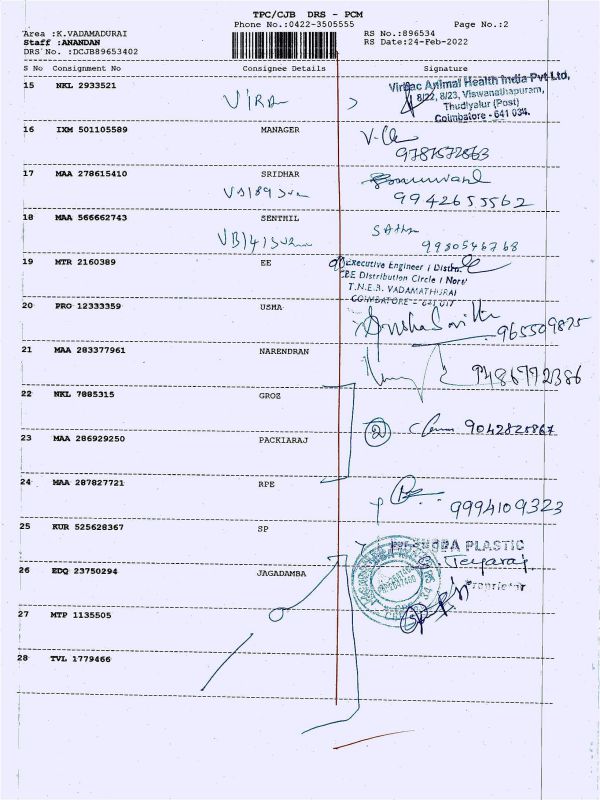 TPC/CJB DRS - PCM
Phone No.:0422-3505555 Page No.:2
Area :K.VADAMADURAI RS No.:896534
Staff :ANANDAN RS Date:24-Feb-2022
DRS No. :DCJB89653402
S No Consignment No Consignee Details Signature
15 NKL 2933521
Virbac Animal Health India Pvt Ltd,
8/22, 8/23, Viswanathapuram,
Thudiyalur (Post)
Coimbatore - 641 034.
16 IXM 501105589 MANAGER
9787572863
17 MAA 278615410 SRIDHAR
9942655562
18 MAA 566662743 SENTHIL
9980546768
19 MTR 2160389 EE
Executive Engineer / Distbn.
CBE Distribution Circle / North
T.N.E.B. VADAMATHURAI
COIMBATORE - 641 017
20 PRO 12333359 USHA
965509875
21 MAA 283377961 NARENDRAN
9486772386
22 NKL 7885315 GROZ
2 9042825867
23 MAA 286929250 PACKIARAJ
24 MAA 287827721 RPE
9994109323
25 KUR 525628367 SP
PLASTIC
S. Jeyaraj
Proprietor
26 EDQ 23750294 JAGADAMBA
27 MTP 1135505
28 TVL 1779466